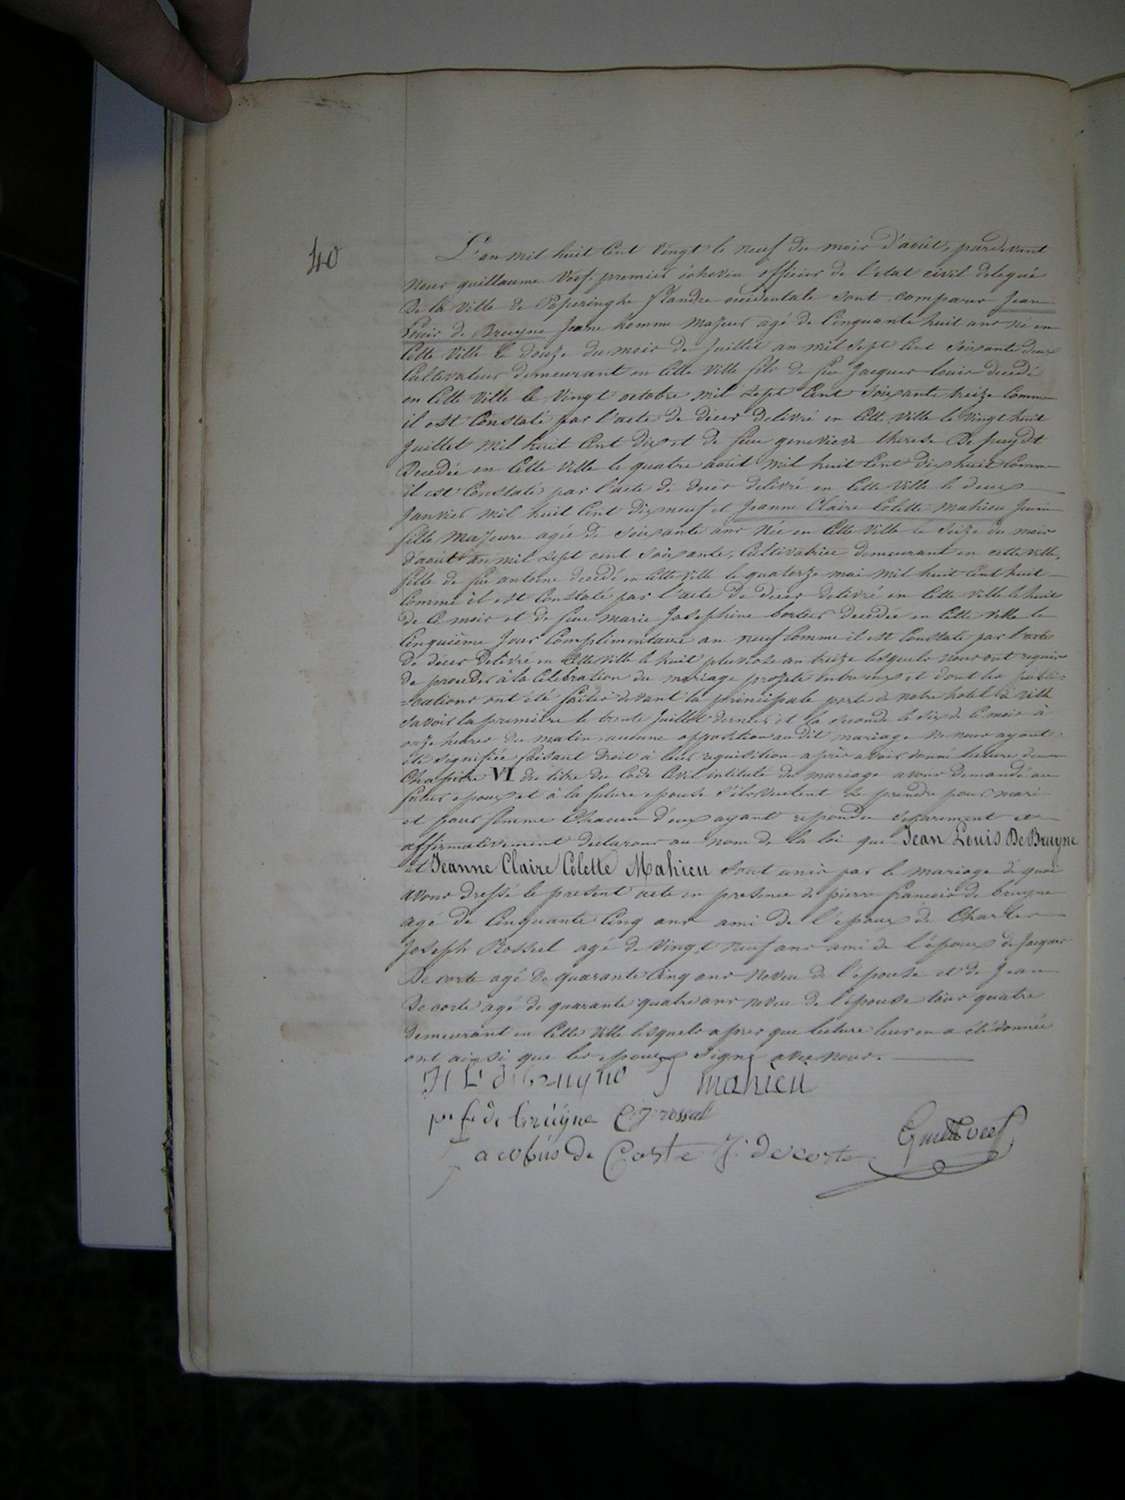 40
L'an mil huit Cent vingt le neuf du mois d'août, pardevant
Nous guillaume Veef premier échevin officier de l'état civil delegué
de la ville de Poperinghe flandre occidentale sont comparus Jean
Louis de Bruyne Jeune homme Majeur agé de Cinquante huit ans né en
Cette ville le douze du mois de Juillet an mil sept Cent Soixante deux
Cultivateur demeurant en Cette Ville fils de feu Jacques Louis decedé
en Cette Ville le Vingt octobre mil sept Cent Soixante treize Comme
il est Constaté par l'acte de décès delivré en Cette Ville le Vingt huit
Juillet mil huit Cent dix et de feue genevieve therese De puydt
Decedée en Cette Ville le quatre août mil huit Cent Dix huit Comme
il est Constaté par l'acte de décès delivré en Cette Ville le deux
Janvier mil huit Cent Dix neuf et Jeanne Claire Colette Mahieu Jeune
fille Majeure agée de Soixante ans Née en Cette Ville le Seize du mois
d'août an mil sept cent Soixante, Cultivatrice demeurant en cette Ville,
fille de feu antoine decedé en Cette Ville le quatorze mai mil huit Cent huit
Comme il est Constaté par l'acte de décès delivré en Cette Ville le huit
de Ce mois et de feue Marie Josephine Decedée en Cette Ville le
Cinquième Jour Complimentaire an neuf Comme il est Constaté par l'acte
de décès delivré en Cette Ville le huit pluviose an treize lesquels nous ont requis
de proceder à la Celebration du mariage projeté entre eux et dont les publi-
-cations ont été faites devant la principale porte de notre hotel de Ville
Savoir la première le trente Juillet dernier et la seconde le Six de Ce mois à
onze heures du Matin, aucune opposition audit mariage Ne nous ayant
été signifiée faisant Droit à leur requisition après avoir donné lecture du
Chapitre VI du titre du Code Civil intitulé du Mariage avons demandé au
futur epoux et à la future epouse s'ils veulent se prendre pour mari
et pour femme Chacun d'eux ayant repondu séparement et
affirmativement declarons au nom de la loi que Jean Louis De Bruyne
et Jeanne Claire Colette Mahieu Sont unis par le mariage de quoi
avons dressé le present acte en presence de pierre francois de bruyne
agé de Cinquante Cinq ans ami de l'epoux de Charles
Joseph Rosseel agé de Vingt Neuf ans ami de l'époux de Jacques
De corte agé De quarante Cinq ans Neveu de l'epouse et de Jean
De corte agé de quarante quatre ans neveu de l'epouse tous quatre
demeurant en Cette Ville lesquels apres que lecture leur en a été donnée
ont ainsi que les epoux Signé avec nous.
J Mahieu
p. f. de bruÿne C J rossel
Jacobus de Corte J. decorte